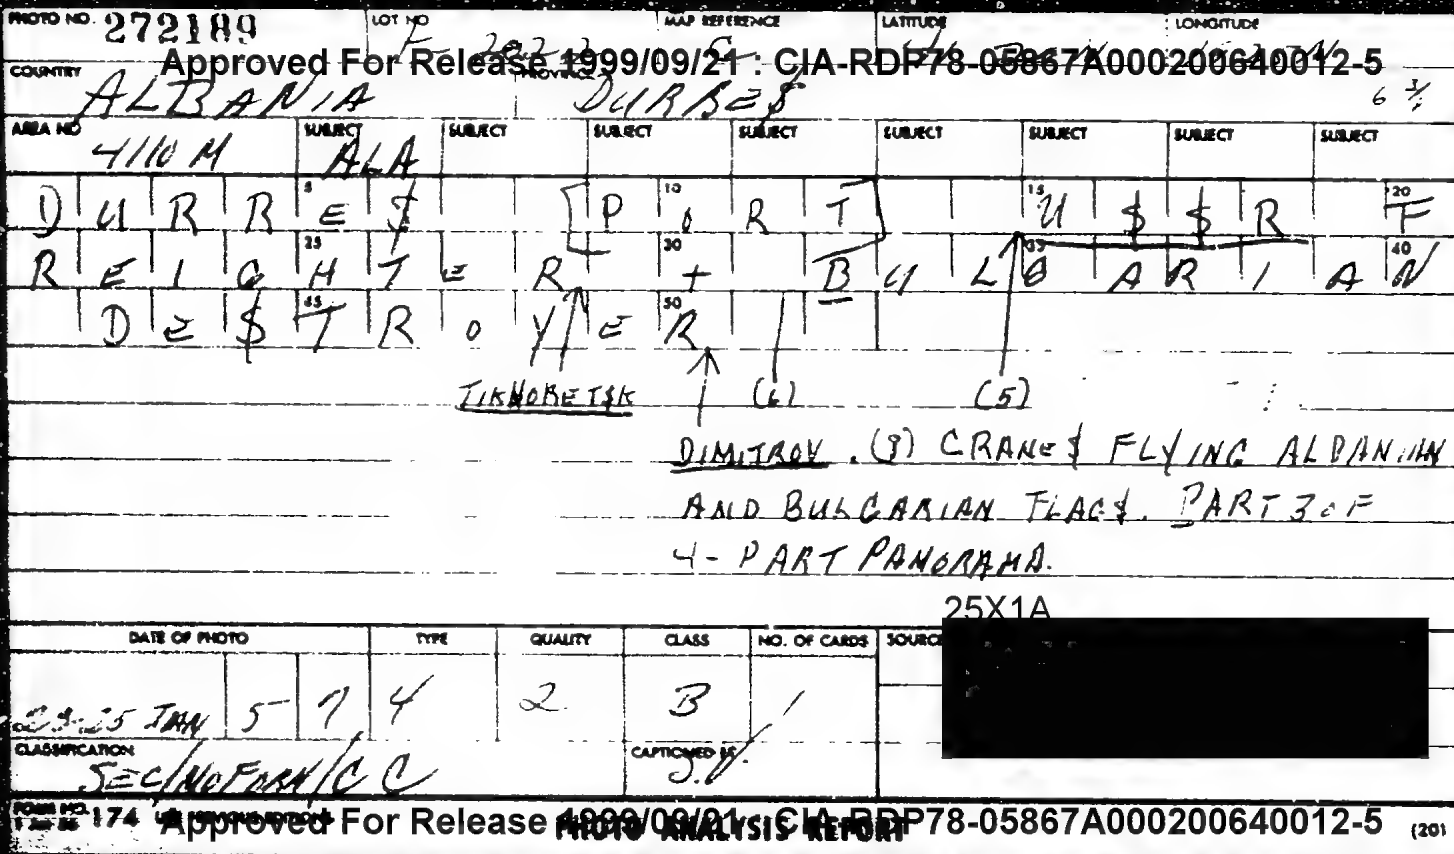 PHOTO NO. 272189 LOT NO MAP REFERENCE LATITUDE LONGITUDE
Approved For Release 1999/09/21 : CIA-RDP78-05867A000200640012-5
COUNTRY ALBANIA PROVINCE DURRES
6 3/
AREA NO 4110 M SUBJECT ALA SUBJECT SUBJECT SUBJECT SUBJECT SUBJECT SUBJECT SUBJECT
DURRES [PORT] USSR F
REIGHTER + BULGARIAN
DESTROYER
TIKHORETSK (6) (5)
DIMITROV. (8) CRANES FLYING ALBANIAN
AND BULGARIAN FLAGS. PART 3 OF
4-PART PANORAMA.
25X1A
DATE OF PHOTO TYPE QUALITY CLASS NO. OF CARDS SOURCE
25 JAN 57 4 2 B 1
CLASSIFICATION SEC/NOFORN/CC CAPTIONED BY J.V.
FORM NO. 174 USE PREVIOUS EDITIONS PHOTO ANALYSIS REPORT (20)
Approved For Release 1999/09/21 : CIA-RDP78-05867A000200640012-5